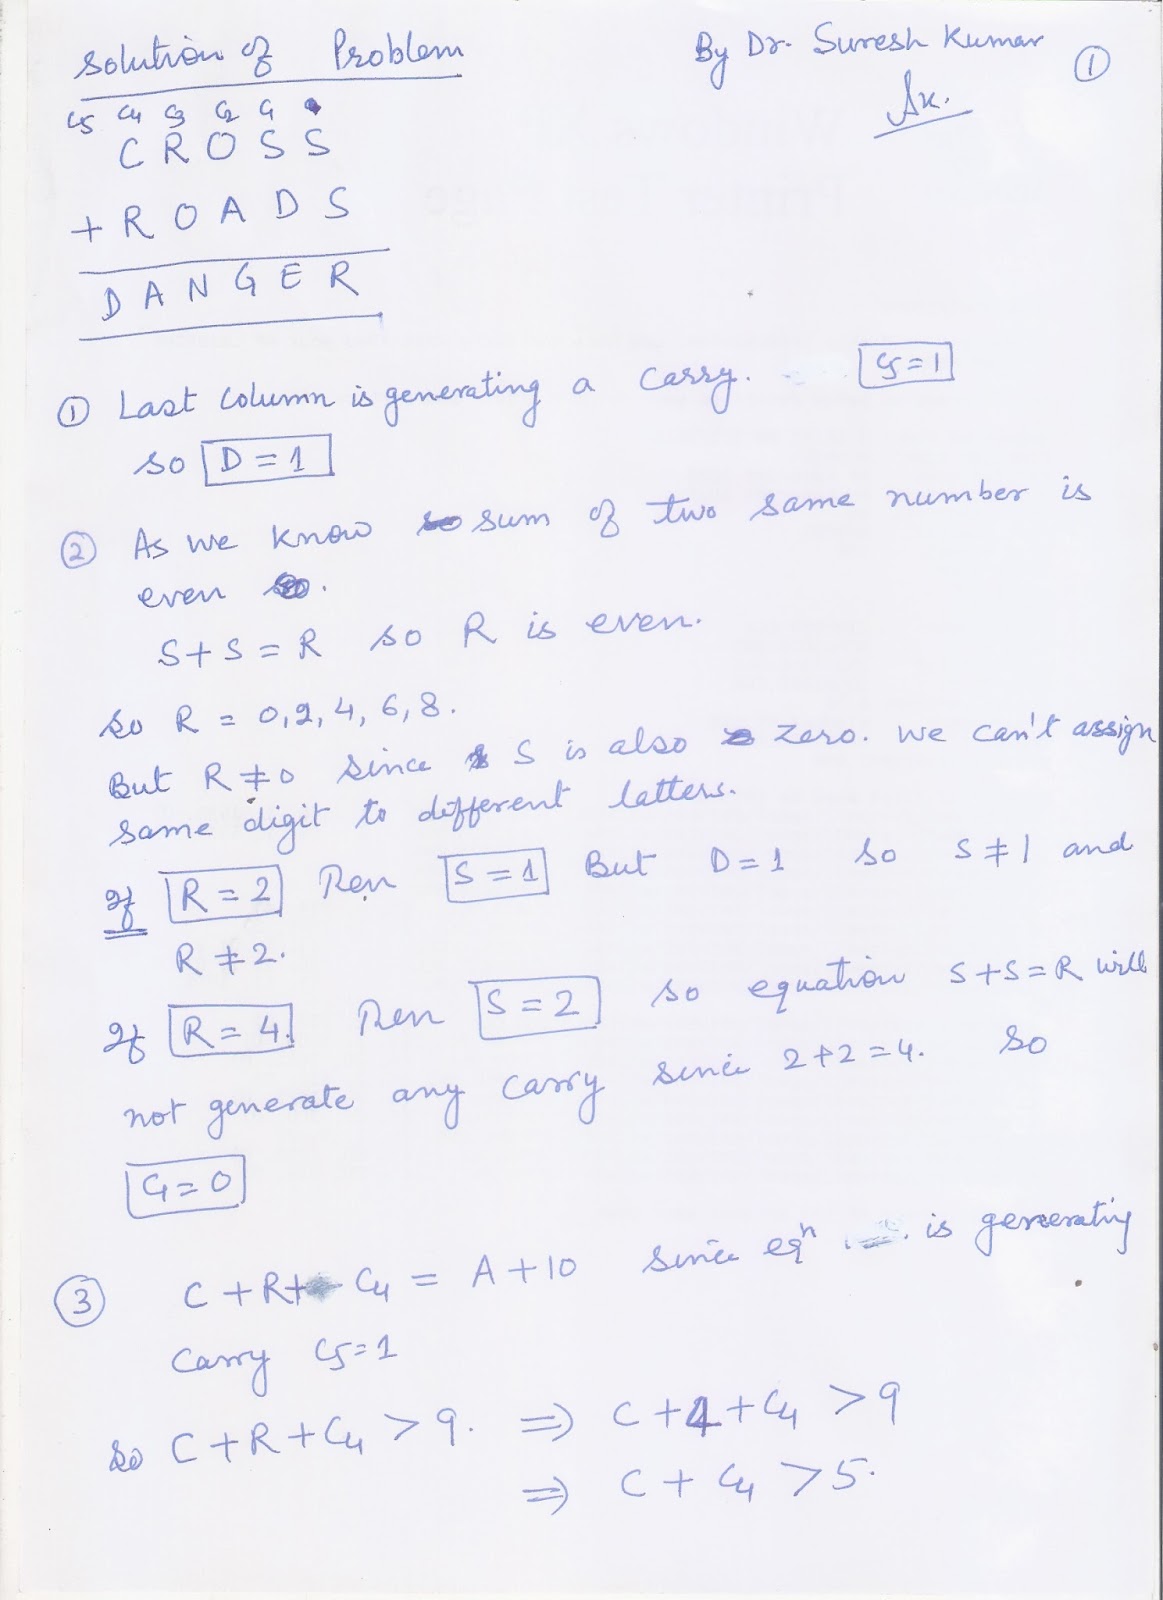 Solution of Problem
By Dr. Suresh Kumar
①
Sk.
C5 C4 C3 C2 C1
C R O S S
+ R O A D S
D A N G E R
① Last column is generating a carry. C5=1
so D = 1
② As we know sum of two same number is
even
S+S = R so R is even.
So R = 0,2,4,6,8.
But R ≠ 0 since S is also zero. we can't assign
same digit to different latters.
If R = 2 Then S = 1 But D=1 so S ≠ 1 and
R ≠ 2.
If R = 4. Then S = 2 so equation S+S=R will
not generate any carry since 2+2=4. So
C1=0
③ C + R + C4 = A + 10 since eqn is generating
carry C5=1
So C+R+C4 > 9. ⇒ C+4+C4 > 9
⇒ C + C4 > 5.